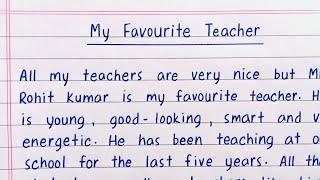 My Favourite Teacher
All my teachers are very nice but M
Rohit kumar is my favourite teacher. H
is young, good-looking, smart and v
energetic. He has been teaching at o
school for the last five years. All th